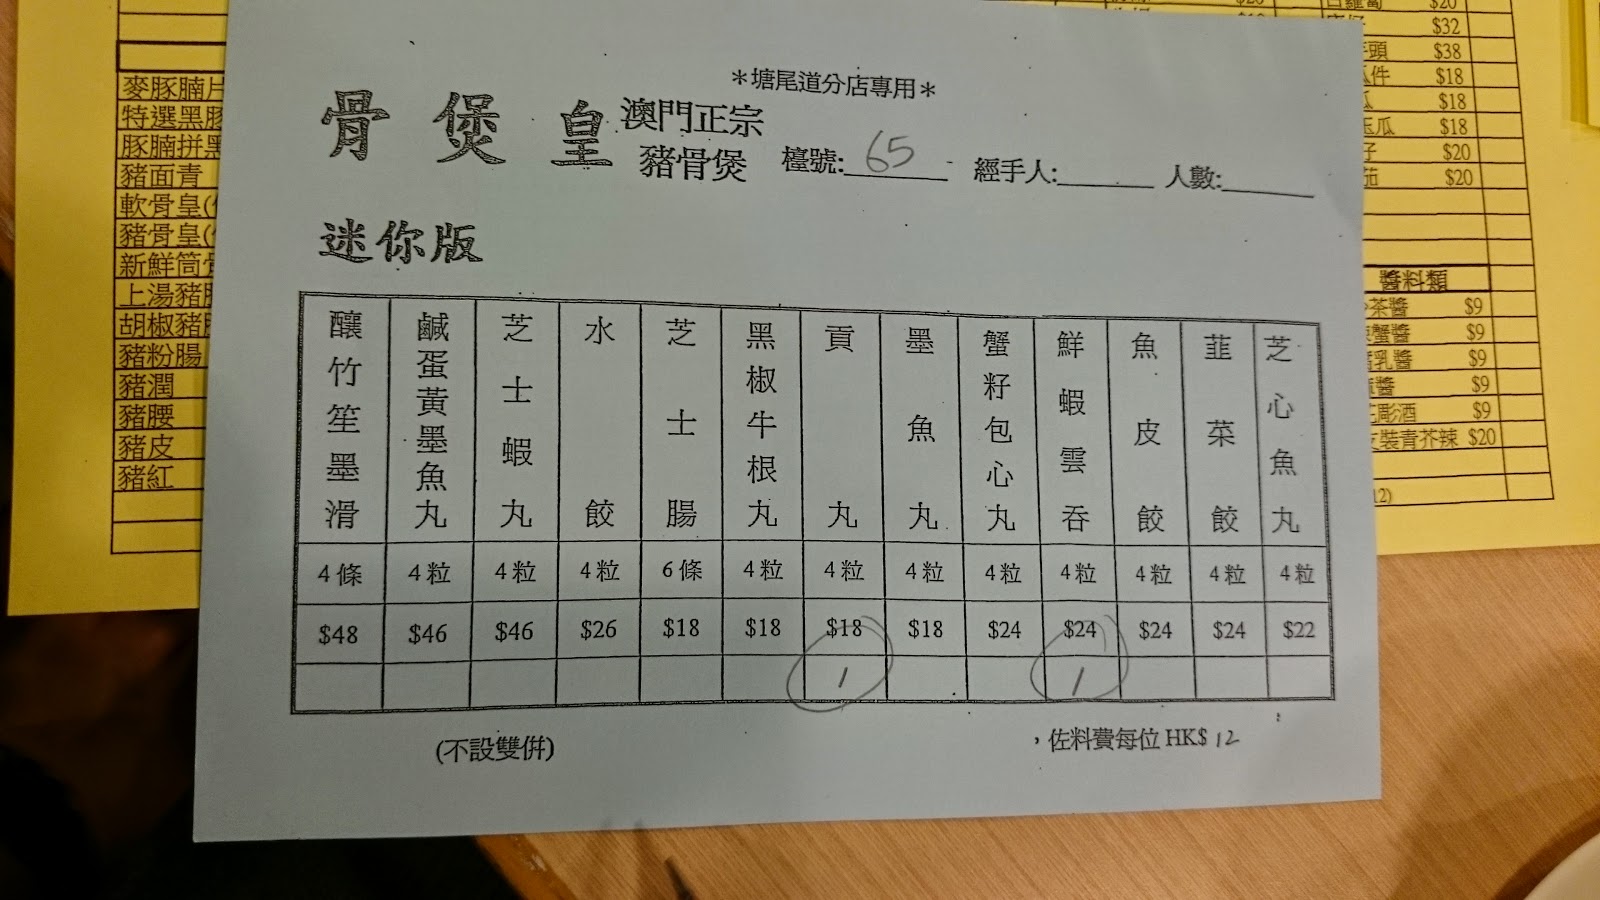 ＊塘尾道分店專用＊
骨煲皇
澳門正宗
豬骨煲
檯號: 65
經手人:
人數:
迷你版
釀竹笙墨滑
鹹蛋黃墨魚丸
芝士蝦丸
水餃
芝士腸
黑椒牛根丸
貢丸
墨魚丸
蟹籽包心丸
鮮蝦雲吞
魚皮餃
韮菜餃
芝心魚丸
4條 4粒 4粒 4粒 6條 4粒 4粒 4粒 4粒 4粒 4粒 4粒 4粒
$48 $46 $46 $26 $18 $18 $18 $18 $24 $24 $24 $24 $22
1 1
(不設雙併)
，佐料費每位 HK$ 12
麥豚腩片
特選黑豚
豚腩拼黑
豬面青
軟骨皇(
豬骨皇(
新鮮筒骨
上湯豬
胡椒豬
豬粉腸
豬潤
豬腰
豬皮
豬紅
$20
$32
頭 $38
件 $18
$18
瓜 $18
$20
茄 $20
醬料類
茶醬 $9
蟹醬 $9
乳醬 $9
醬 $9
彫酒 $9
裝青芥辣 $20
12)